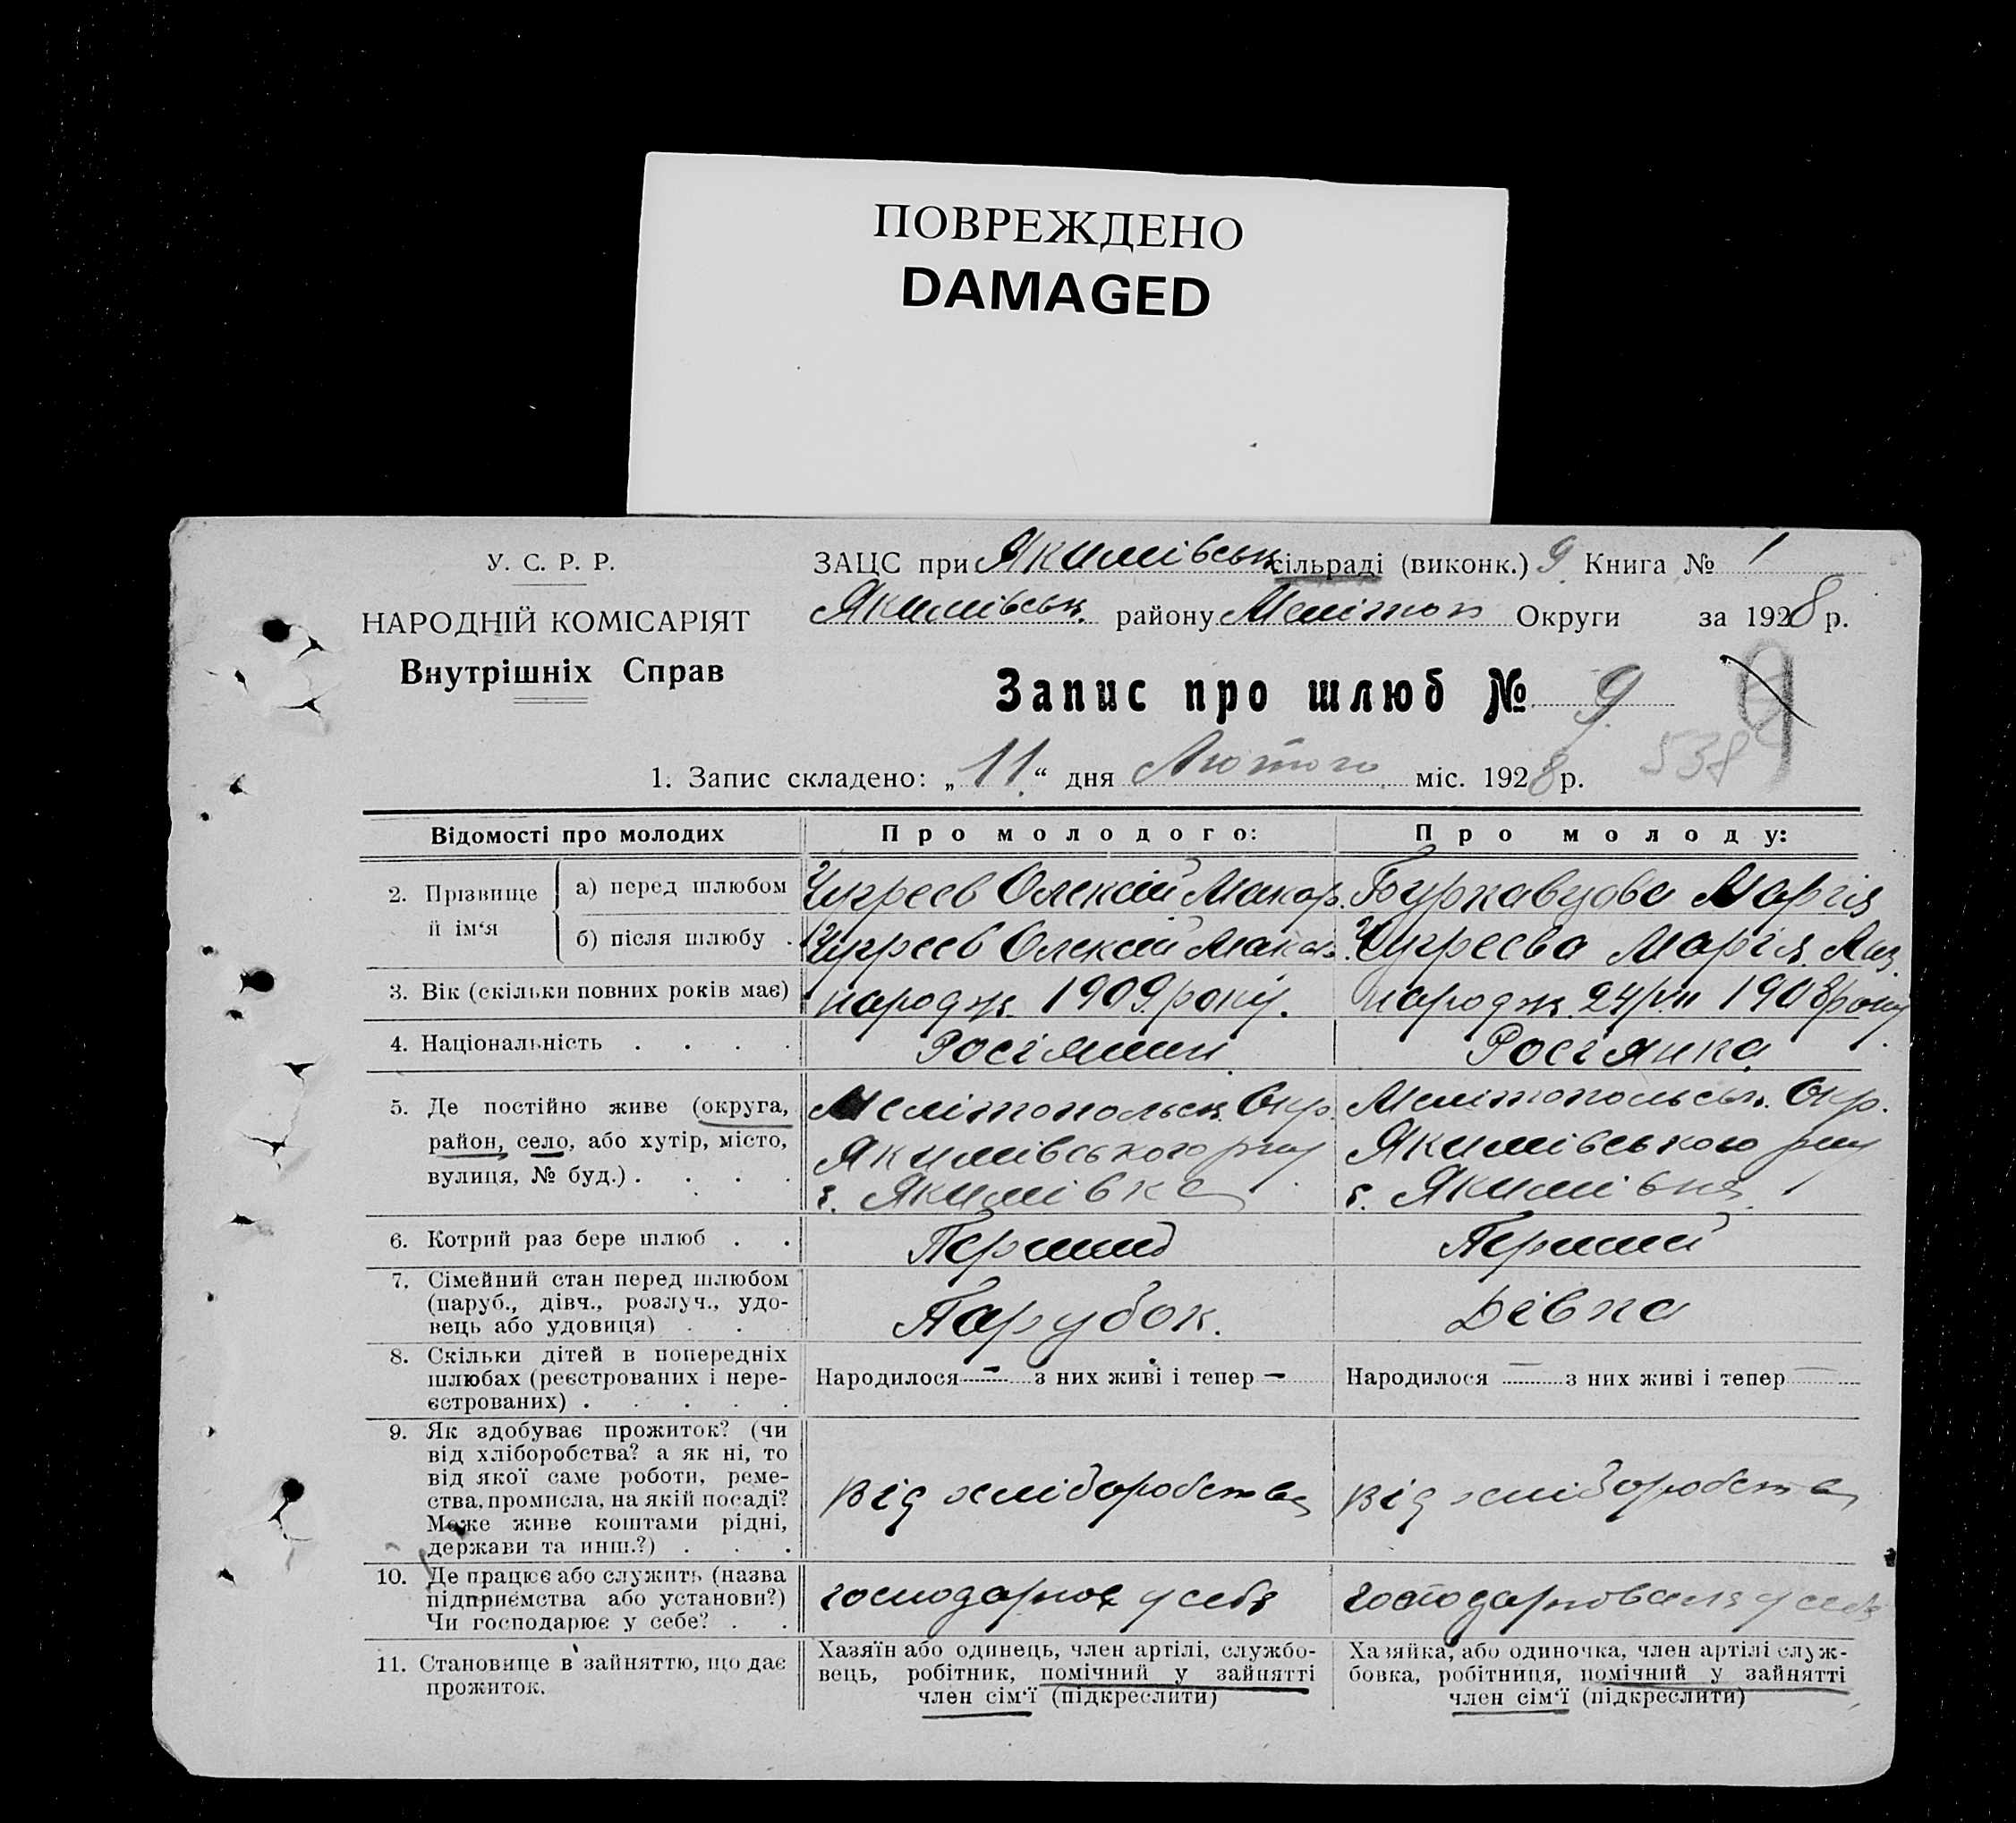 ПОВРЕЖДЕНО
DAMAGED
У. С. Р. Р.
НАРОДНІЙ КОМІСАРІЯТ
Внутрішніх Справ
ЗАЦС при Якимівськ сільраді (виконк.) 9 Книга № 1
Якимівськ. району Мелітоп Округи за 1928 р.
Запис про шлюб № 9
538
1. Запис складено: „11“ дня Лютого міс. 1928 р.
Відомості про молодих
Про молодого:
Про молоду:
2. Прізвище й ім‘я
а) перед шлюбом
Чугреєв Олексій Макар.
Марія
б) після шлюбу .
Чугреєв Олексій Макар.
Чугреєва Марія
3. Вік (скільки повних років має)
народж. 1909 року.
народж. 24/VII 1908 року
4. Національність . . . .
Росіянин
Росіянка
5. Де постійно живе (округа,
район, село, або хутір, місто,
вулиця, № буд.) . . . .
Мелітопольськ. Окр.
Якимівського р-ну
с. Якимівка
Мелітопольськ. Окр.
Якимівського р-ну
с. Якимівка
6. Котрий раз бере шлюб . .
Перший
Перший
7. Сімейний стан перед шлюбом
(паруб., дівч., розлуч., удо-
вець або удовиця) . . .
Парубок.
Дівка
8. Скільки дітей в попередніх
шлюбах (реєстрованих і нере-
єстрованих) . . . . .
Народилося — з них живі і тепер —
Народилося — з них живі і тепер —
9. Як здобуває прожиток? (чи
від хліборобства? а як ні, то
від якої саме роботи, реме-
ства, промисла, на якій посаді?
Може живе коштами рідні,
держави та инш.?) . . .
Від хліборобства
Від хліборобства
10. Де працює або служить (назва
підприємства або установи?)
Чи господарює у себе? . .
господарює у себе
господарювала у себе
11. Становище в зайняттю, що дає
прожиток.
Хазяїн або одинець, член артілі, службо-
вець, робітник, помічний у зайнятті
член сім‘ї (підкреслити)
Хазяйка, або одиночка, член артілі служ-
бовка, робітниця, помічний у зайнятті
член сім‘ї (підкреслити)